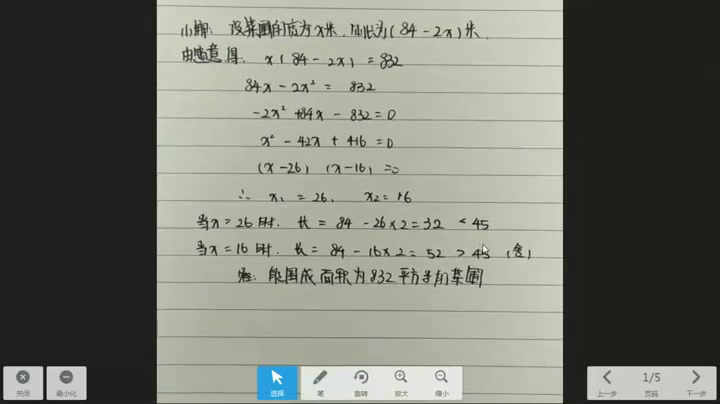 小解：设菜圃的宽为x米，则长为(84-2x)米.
由题意得：x(84-2x)=832
84x-2x²=832
-2x²+84x-832=0
x²-42x+416=0
(x-26)(x-16)=0
∴ x₁=26, x₂=16
当x=26时, 长=84-26×2=32<45
当x=16时, 长=84-16×2=52>45 (舍)
答：能围成面积为832平方米的菜圃
关闭 最小化 选择 笔 旋转 放大 缩小 上一步 1/5 页码 下一步